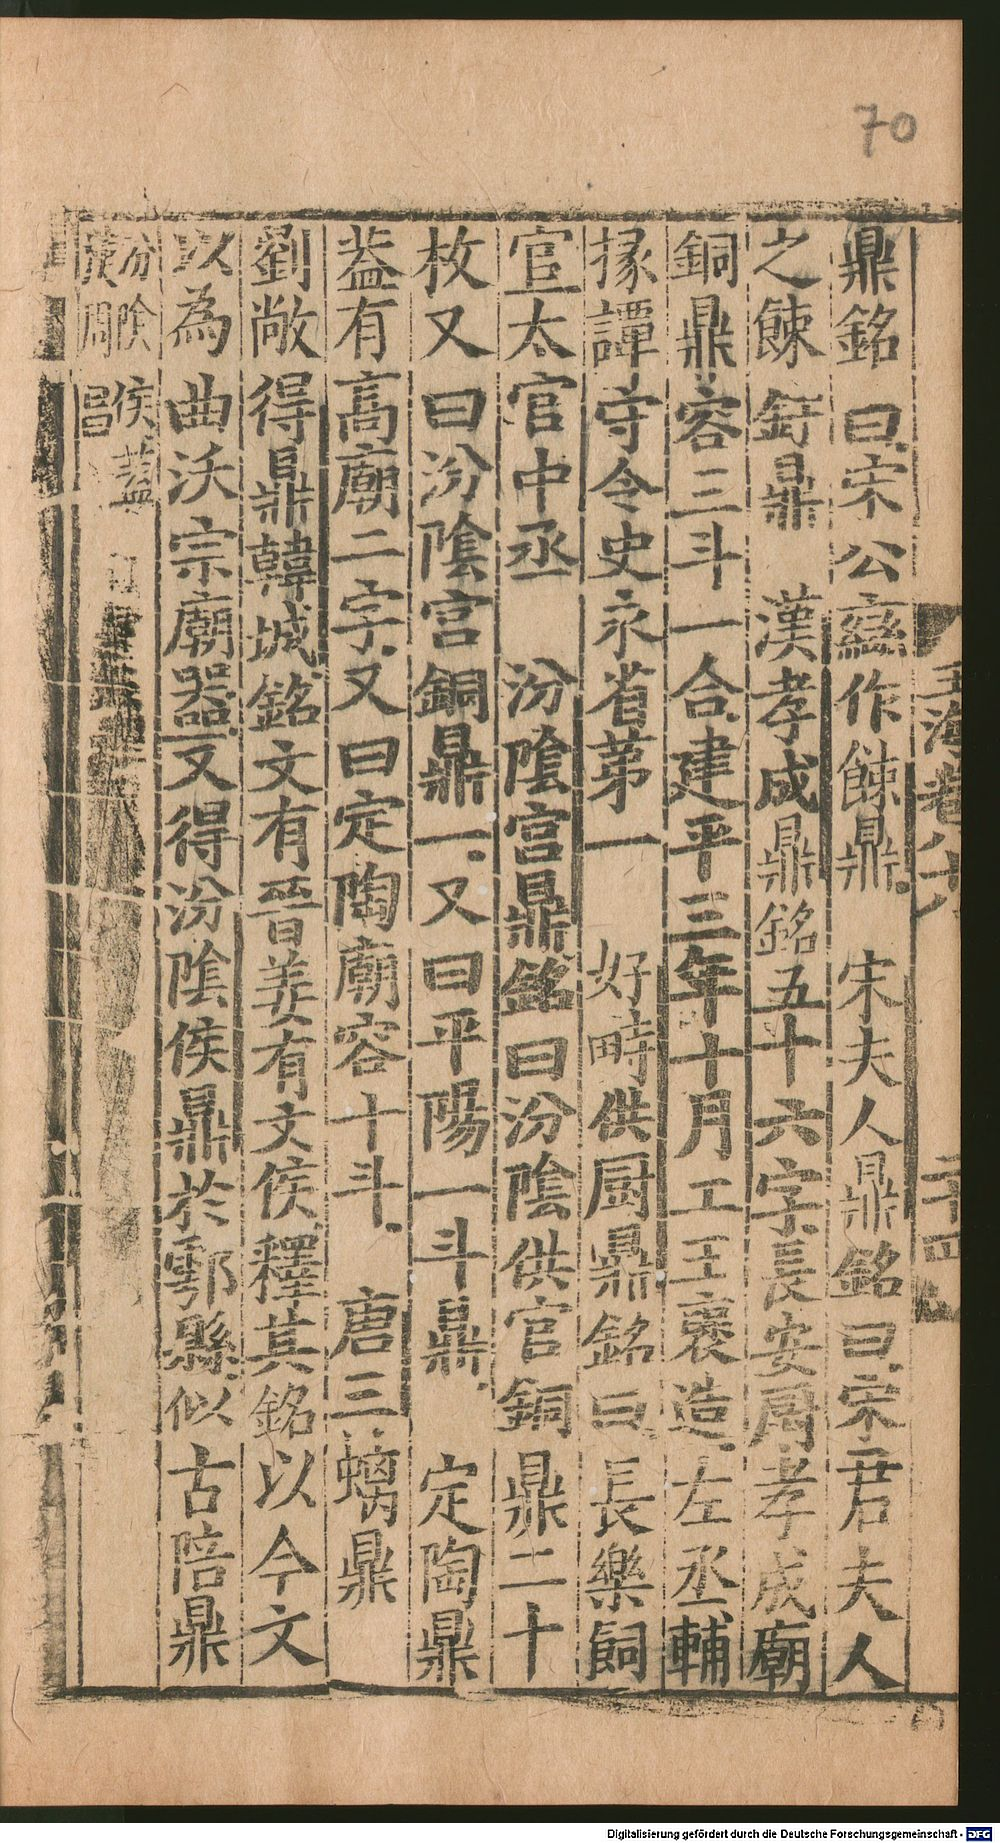 70
鼎銘曰宋公䜌作餗鼎　宋夫人鼎銘曰宋君夫人
之餗釪鼎　漢孝成鼎銘五十六字長安廚孝成廟
銅鼎容三斗一合建平三年十月工王襃造左丞輔
掾譚守令史永省苐一　好畤供厨鼎銘曰長樂飼
官太官中丞　汾陰宫鼎銘曰汾陰供官銅鼎二十
枚又曰汾陰宫銅鼎一又曰平陽一斗鼎　定陶鼎
葢有高廟二字又曰定陶廟容十斗　唐三螭鼎
劉敞得鼎韓城銘文有晉姜有文侯釋其銘以今文
以為曲沃宗廟器又得汾陰侯鼎於鄠縣似古陪鼎
汾陰侯葢
周昌
玉海卷八十八
二十四
Digitalisierung gefördert durch die Deutsche Forschungsgemeinschaft - DFG